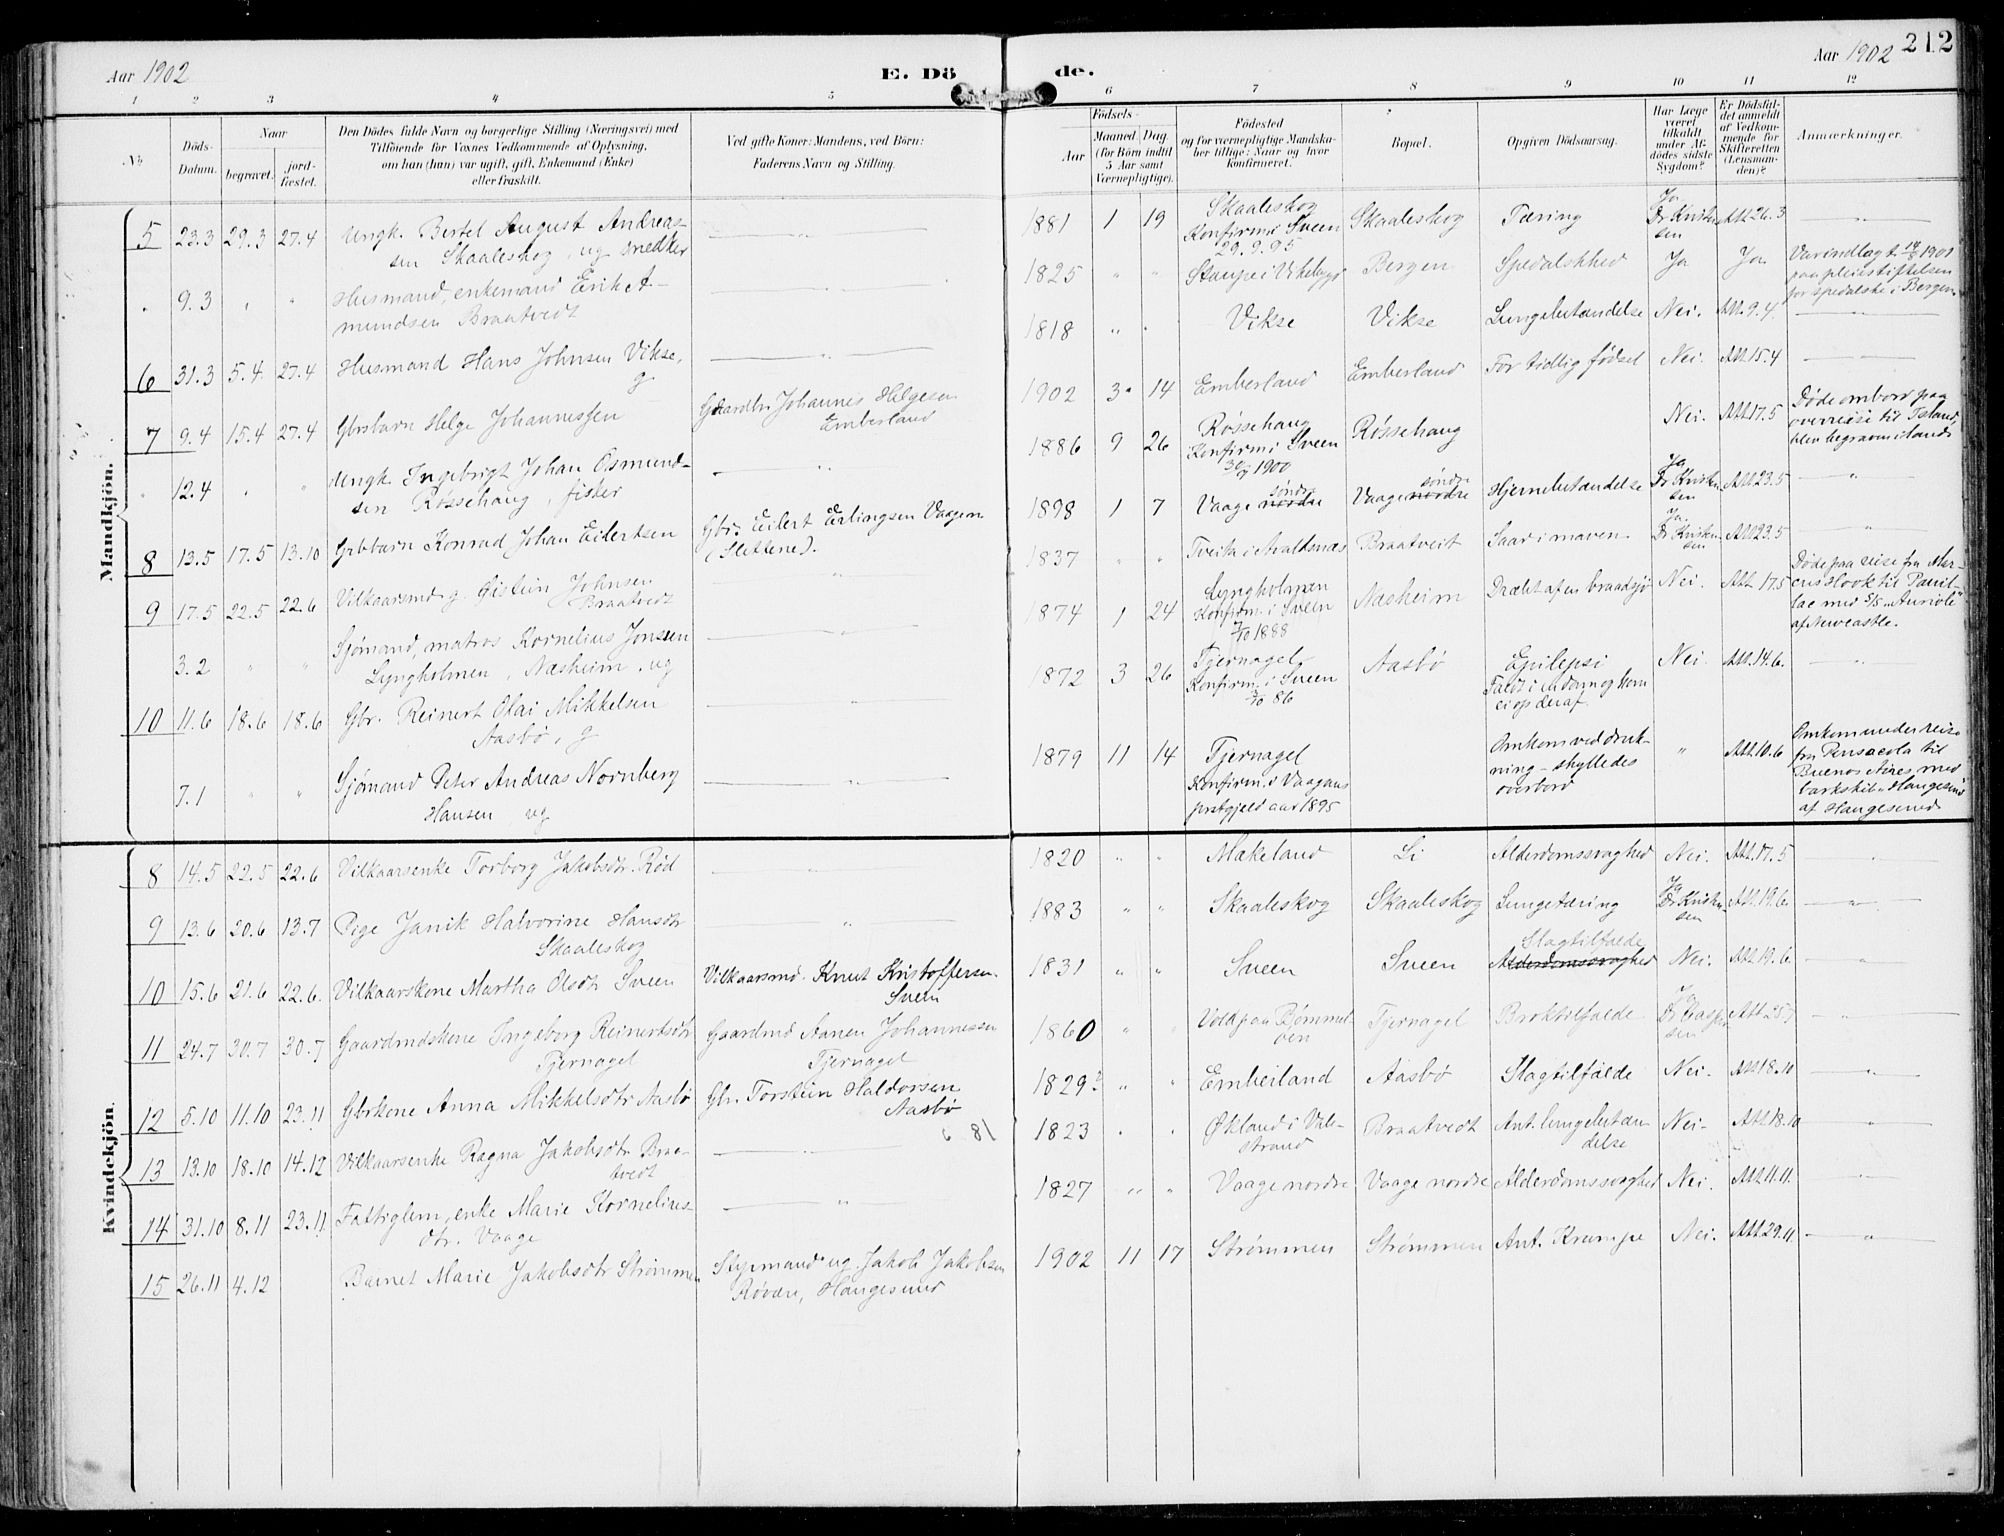 Aar 1902
E. Dö
de.
Aar 1902
212
1 2 3 4 5 6 7 8 9 10 11 12
No
Döds-Datum.
Naar
begravet.
jord-fæstet.
Den Dödes fulde Navn og borgerlige Stilling (Næringsvei) med
Tilföiende for Voxnes Vedkommende af Oplysning,
om han (hun) var ugift, gift, Enkemand (Enke)
eller fraskilt.
Ved gifte Koner: Mandens, ved Börn:
Faderens Navn og Stilling.
Födsels-
Aar
Maaned. Dag.
(for Börn indtil
5 Aar samt
Værnepligtige).
Födested
og for værnepligtige Mandska-
ber tillige: Naar og hvor
konfirmeret.
Bopæl.
Opgiven Dödsaarsag.
Har Læge
været
tilkaldt
under Af-
dödes sidste
Sygdom?
Er Dödsfal-
det anmeldt
af Vedkom-
mende for
Skifteretten
(Lensman-
den)?
Anmærkninger.
Mandkjön.
5 23.3 29.3 27.4 Ungk. Bertel August Andreas-
sen Skaaleskog, ug snedker
1881 1 19 Skaaleskog
Konfirm i Sveen
29.9.95
Skaaleskog Tæring Ja
Dr Kristen-
sen
Att 26.3
9.3 " " Husmand, enkemand Erik A-
mundsen Braatvedt
1825 " " Stange i Vikebygd Bergen Spedalskhed Ja Ja
Var indlagt 1901
paa pleiestiftelsen
for spedalske i Bergen
6 31.3 5.4 27.4 Husmand Hans Johnsen Vikse,
g
1818 " " Vikse Vikse Lungebetændelse Nei. Att. 9.4
7 9.4 15.4 27.4 Gbrsbarn Helge Johannessen
Gaardbr Johannes Helgesen
Emberland
1902 3 14 Emberland Emberland For tidlig födsel Nei. Att. 15.4
12.4 " " Ungk. Ingebrigt Johan Osmund-
sen Røssehaug, fisker
1886 9 26 Røssehaug
Konfirm i Sveen
30/9 1900
Røssehaug Nei. Att 17.5
Døde ombord paa
overreise til Island,
blev begravn island
8 13.5 17.5 13.10 Grbbarn Konrad Johan Eilertsen
Gbr. Eilert Erlingsen Vaagen
(Slettene).
1898 1 7 Vaage nordre söndre Vaage nordre söndre Hjernebetændelse Ja
Dr Kristen-
sen
Att 23.5
9 17.5 22.5 22.6 Vilkaarsmd. g. Øistein Johnsen
Braatvedt
1837 " " Tveita i Avaldsnæs Braatveit Saar i maven Ja
Dr Kristen-
sen
Att 23.5
3.2 " " Sjømand, matros Kornelius Jonssen
Lyngholmen, Næsheim, ug
1874 1 24 Lyngholmen
Konfirm. i Sveen
7/10 1888
Næsheim Dræbt af en braadsjø Nei. Att. 17.5
Døde paa reise fra
til
lac med S/S "Auriole"
af Newcastle.
10 11.6 18.6 18.6 Gbr. Reinert Olai Mikkelsen
Aasbø, g
1872 3 26 Tjernagel
Konfirm. i Sveen
3/10 86
Aasbø Epilepsi
Faldt i en dam og kom
ei op deraf
Nei. Att. 14.6.
7.1 " " Sjømand Peter Andreas Nornberg
Hansen, ug
1879 11 14 Tjernagel
Konfirm. i Vaagans
prstgjeld aar 1895
Omkom ved druk-
ning - skylledes
overbord
" Att. 10.6
Omkom under reise
fra Pensacola til
Buenos Aires med
barkskib "Haugesund"
af Haugesund
Kvindekjön.
8 14.5 22.5 22.6 Vilkaarsenke Torborg Jakobsdtr. Rød
1820 " " Mækeland Li Alderdomssvaghed Nei. Att. 17.5
9 13.6 20.6 13.7 Pige Janik Halvorine Hansdtr
Skaaleskog
1883 " " Skaaleskog Skaaleskog Lungetæring Ja
Dr Kristen-
sen
Att. 19.6.
10 15.6 21.6 22.6. Vilkaarskone Martha Olsdtr Sveen
Vilkaarsmd. Knut Kristoffersen
Sveen
1831 " " Sveen Sveen Slagtilfælde
Alderdomssvaghed
Nei. Att. 19.6.
11 24.7 30.7 30.7 Gaardmdskone Ingeborg Reinertsdtr
Tjernagel
Gaardmd Aanen Johannessen
Tjernagel
1860 " " Vold paa Bømmel-
øen
Tjernagel Broktilfælde Ja
Dr Casper-
sen
Att 25.7
12 5.10 11.10 23.11 Gbrkone Anna Mikkelsdtr Aasbø
Gbr. Torstein Haldorsen
Aasbø
6 81
1829? " " Emberland Aasbø Slagtilfælde Nei. Att 18.10
13 13.10 18.10 14.12 Vilkaarsenke Ragna Jakobsdtr Braa-
tvedt
1823 " " Økland i Vale-
strand
Braatvedt Ant. lungebetæn-
delse
Nei. Att. 18.10
14 31.10 8.11 23.11 Fattiglem, enke Marie Kornelius-
dtr. Vaage
1827 " " Vaage nordre Vaage nordre Alderdomssvaghed Nei. Att. 11.11.
15 26.11 4.12 Barnet Marie Jakobsdtr Strømmen
Styrmand ug. Jakob Jakobsen
Røvær, Haugesund
1902 11 17 Strømmen Strømmen Ant. Krampe Nei. Att. 29.11.